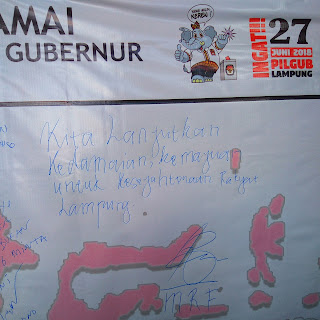 AMAI
GUBERNUR
INGAT!!!
27
JUNI 2018
PILGUB
LAMPUNG
Kita Lanjutkan
Kedamaian, kemajuan
untuk kesejahteraan Rakyat
Lampung.
MRF